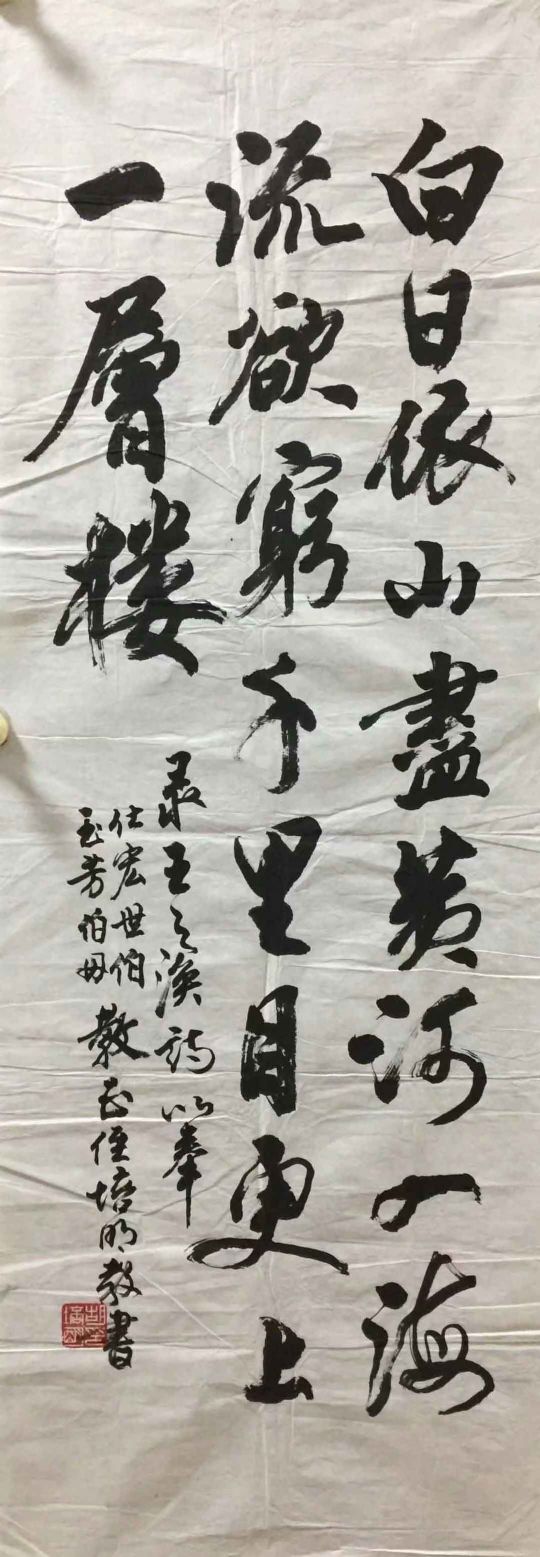 白日依山盡黄河入海
流欲窮千里目更上
一層樓
录王之渙詩以奉
仕宏世伯
玉芳伯母
教正侄培明敬書